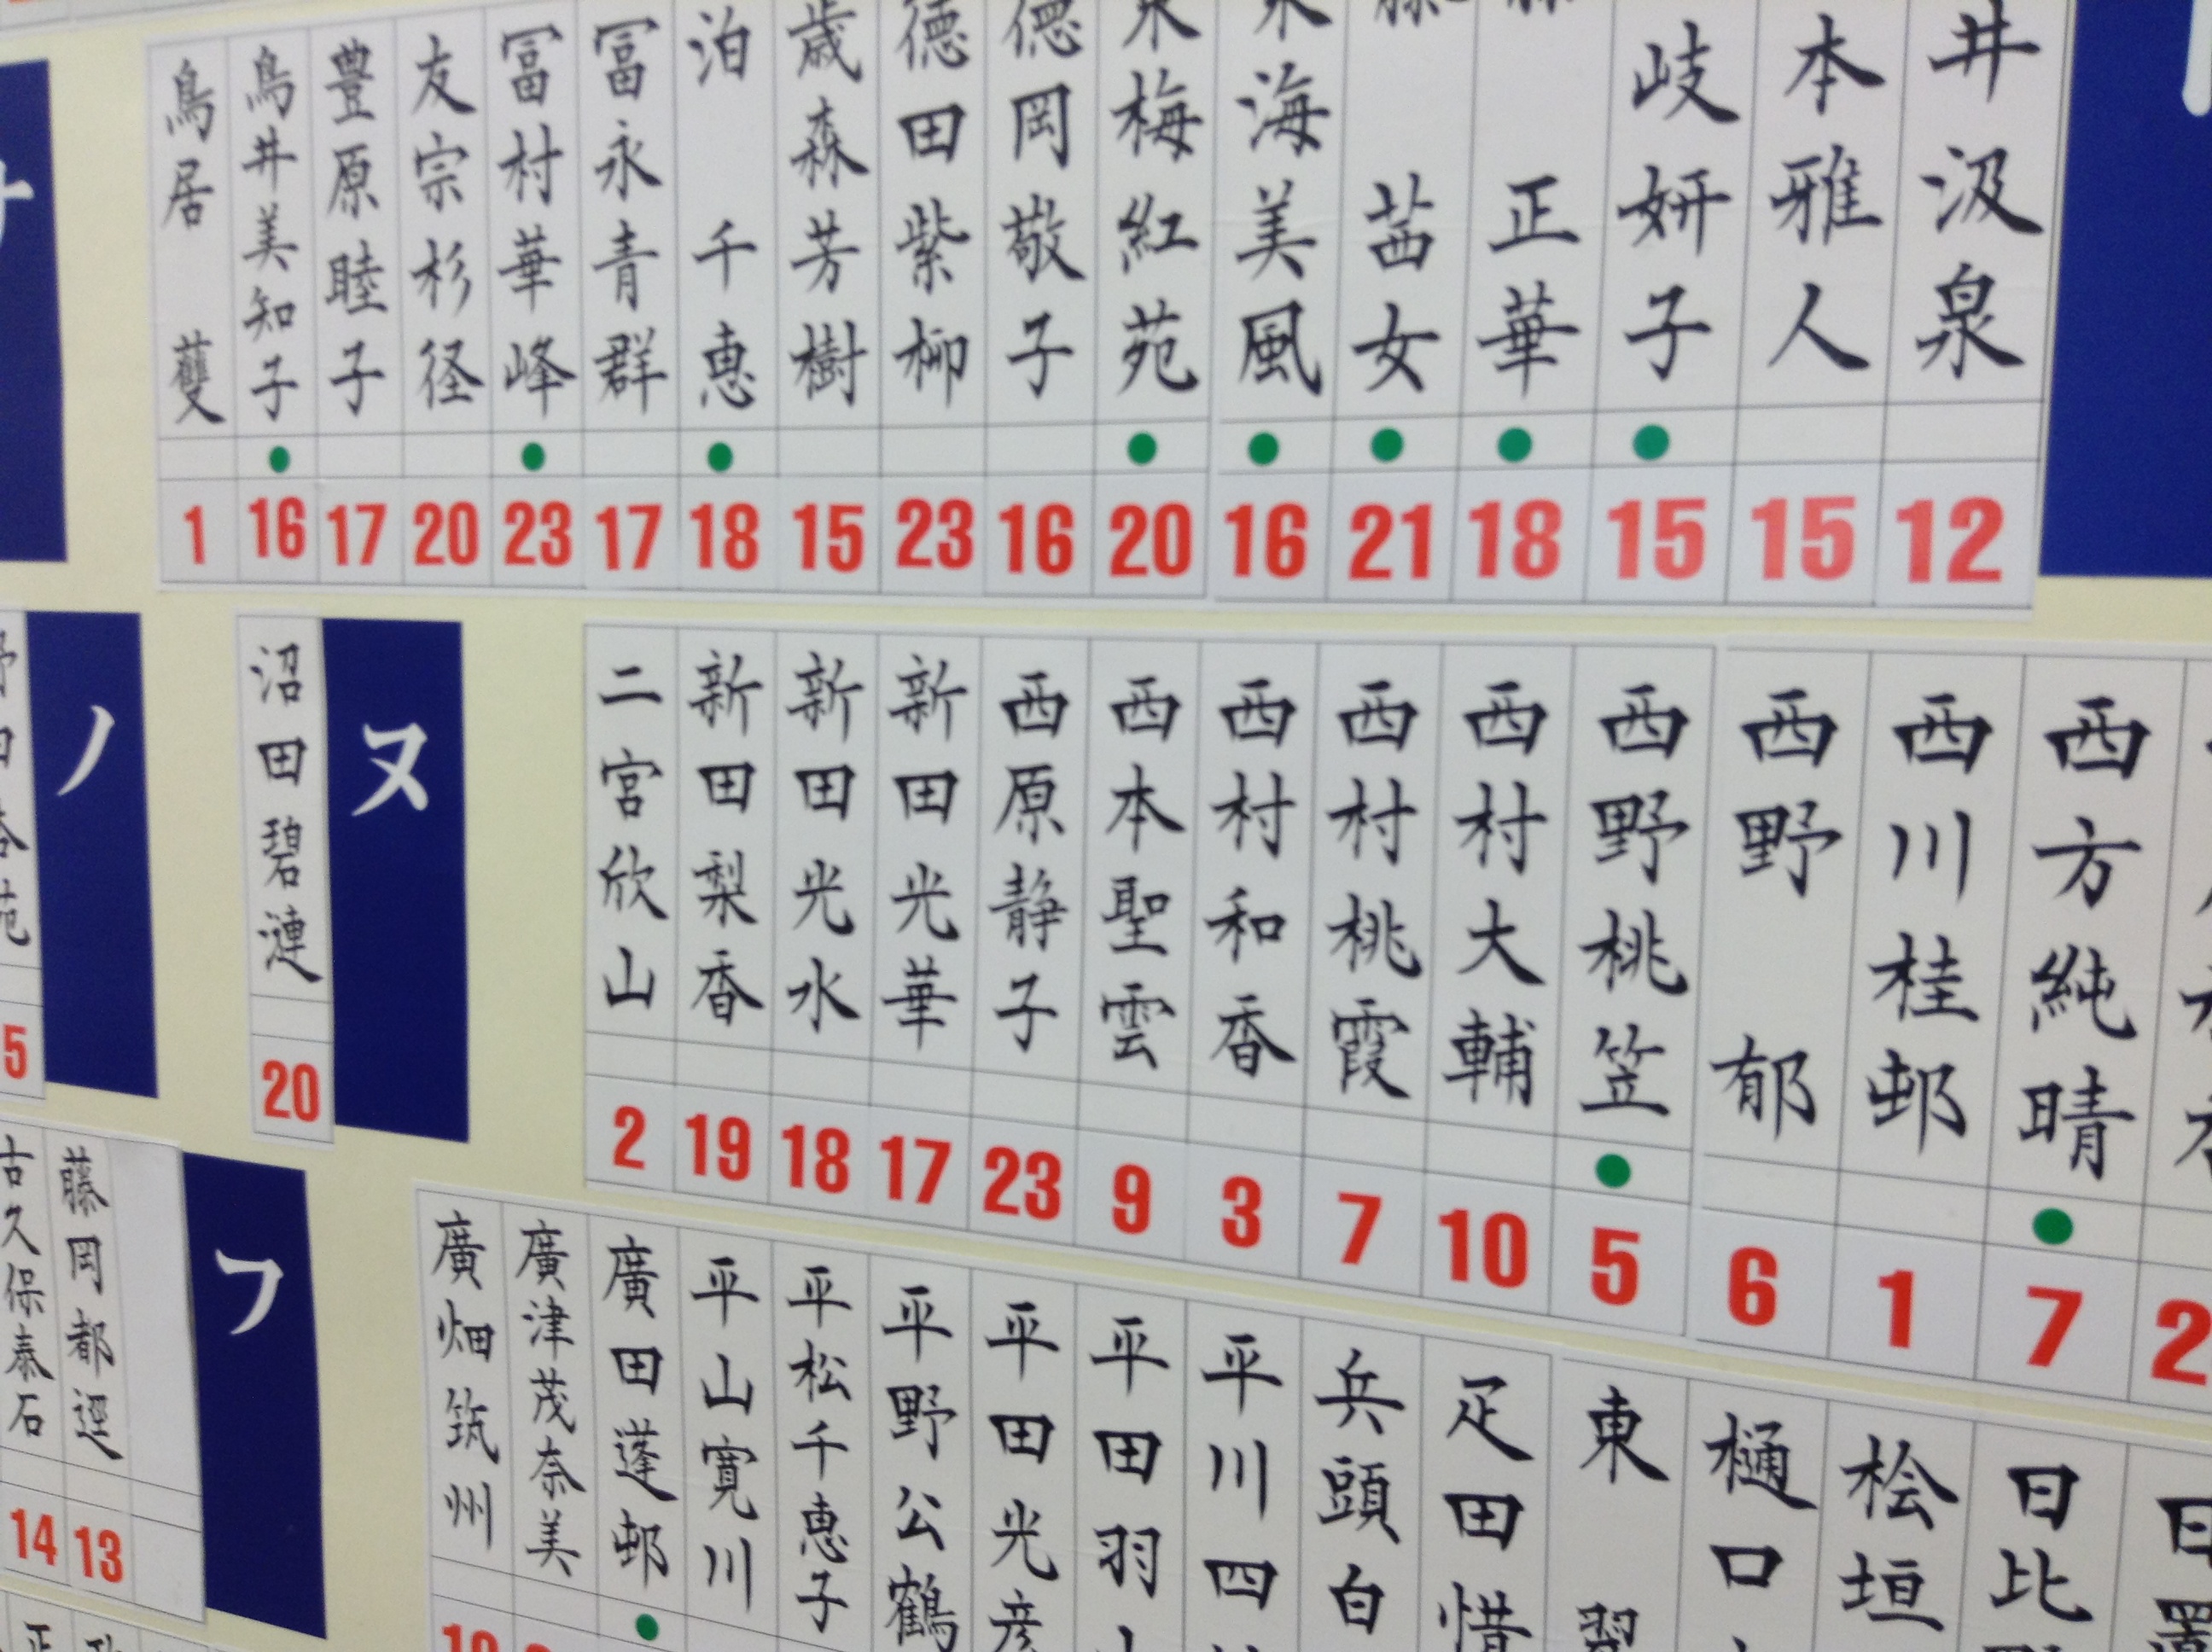 井汲泉
12
本雅人
15
岐妍子
15
正華
18
茜女
21
海美風
16
梅紅苑
20
德岡敬子
16
德田紫柳
23
歳森芳樹
15
泊千恵
18
冨永青群
17
冨村華峰
23
友宗杉径
20
豊原睦子
17
鳥井美知子
16
鳥居
1
2
西方純晴
7
西川桂邨
1
西野郁
6
西野桃笠
5
西村大輔
10
西村桃霞
7
西村和香
3
西本聖雲
9
西原静子
23
新田光華
17
新田光水
18
新田梨香
19
二宮欣山
2
ヌ
沼田碧漣
20
ノ
5
日比
桧垣
樋口
東
疋田惜
兵頭白
平川四
平田羽
平田光彦
平野公鶴
平松千恵子
平山寛川
廣田蓬邨
廣津茂奈美
廣畑筑州
フ
藤岡都逕
13
古久保泰石
14